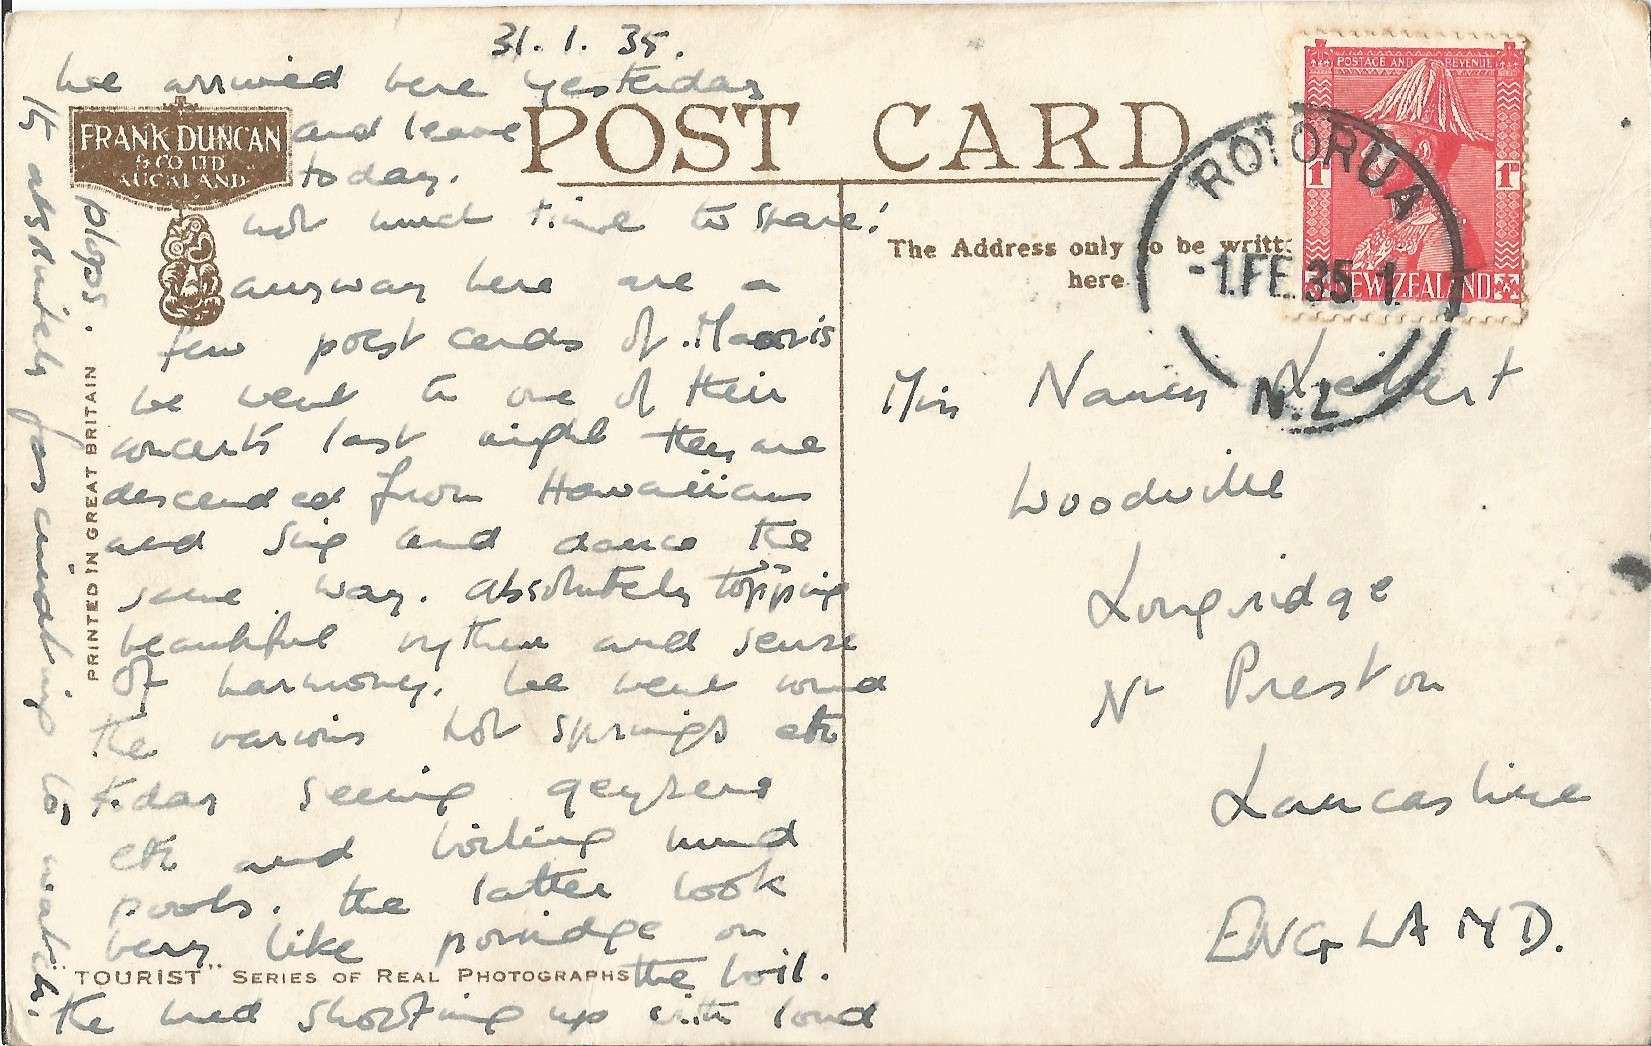 31.1.35.
We arrived here yesterday
and leave
today.
not much time to spare!
anyway here are a
few post cards of Maoris
we went to one of their
concerts last night they are
descended from Hawaiians
and sing and dance the
same way. absolutely topping
beautiful rythem and sense
of harmony. We went round
the various hot springs etc
today seeing geysers
etc and boiling mud
pools. the latter look
very like porridge on
the boil.
the mud shooting up with loud
plops.
Is absolutely fascinating to watch.
FRANK DUNCAN
& CO LTD
AUCKLAND
POST CARD
PRINTED IN GREAT BRITAIN
"TOURIST" SERIES OF REAL PHOTOGRAPHS
The Address only to be writt
here
POSTAGE AND REVENUE
1D 1D
NEW ZEALAND
ROTORUA
-1.FE.35.1
N.Z
Miss Nancy
Woodville
Longridge
Nr Preston
Lancashire
ENGLAND.